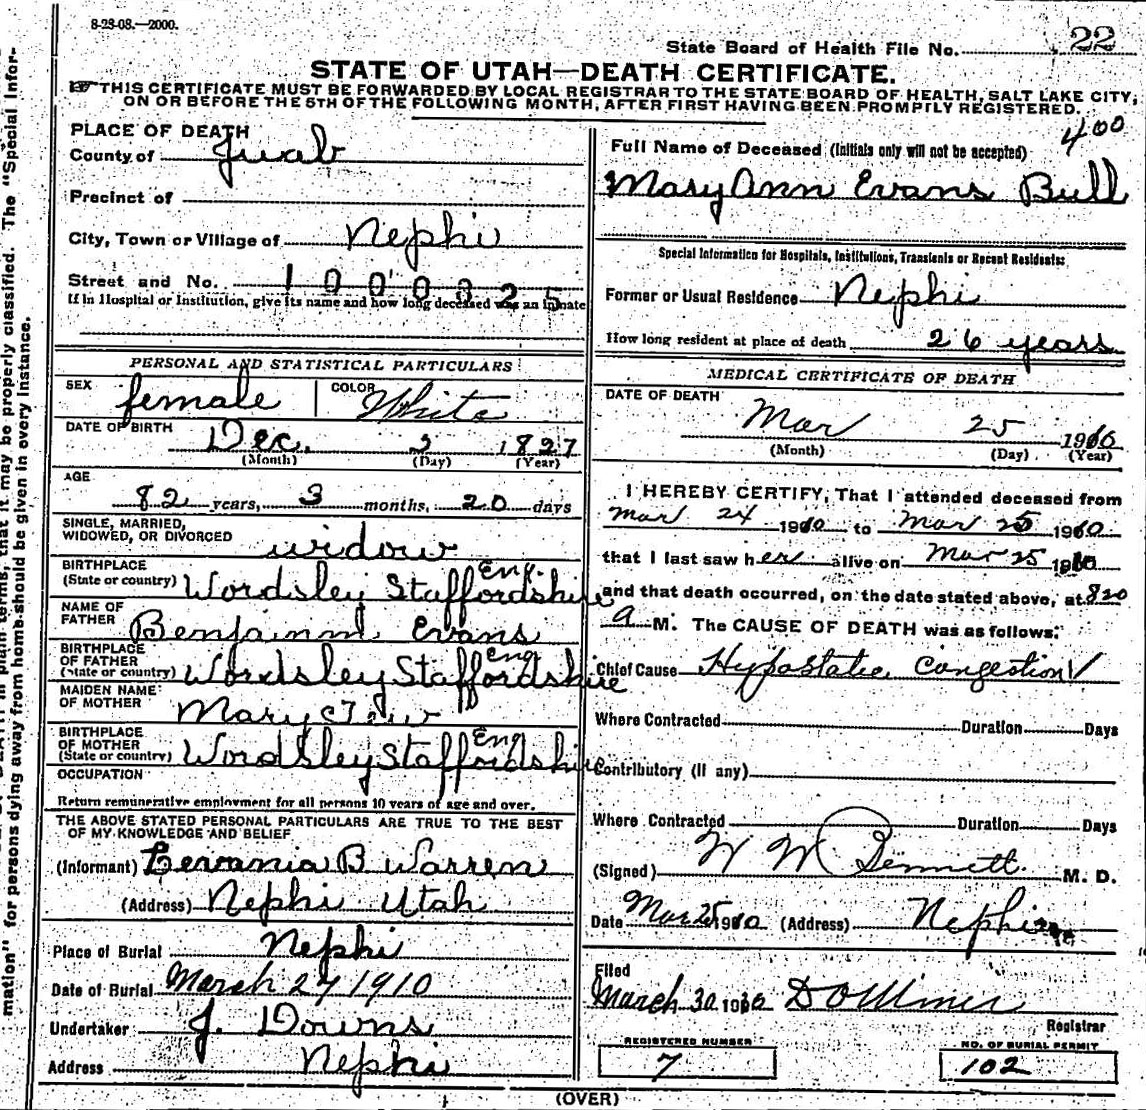 8-23-08.—2000.
State Board of Health File No. 22
STATE OF UTAH—DEATH CERTIFICATE.
THIS CERTIFICATE MUST BE FORWARDED BY LOCAL REGISTRAR TO THE STATE BOARD OF HEALTH, SALT LAKE CITY,
ON OR BEFORE THE 5TH OF THE FOLLOWING MONTH, AFTER FIRST HAVING BEEN PROMPTLY REGISTERED.
400
PLACE OF DEATH
County of Juab
Precinct of
City, Town or Village of Nephi
Street and No. 1000025
If in Hospital or institution, give its name and how long deceased was an inmate
PERSONAL AND STATISTICAL PARTICULARS
SEX female COLOR White
DATE OF BIRTH Dec. 1827
(Month) (Day) (Year)
AGE
82 years, 3 months, 20 days
SINGLE, MARRIED,
WIDOWED, OR DIVORCED widow
BIRTHPLACE
(State or country) Wordsley Staffordshire Eng.
NAME OF
FATHER Benjamin Evans
BIRTHPLACE
OF FATHER
(State or country) Wordsley Staffordshire Eng
MAIDEN NAME
OF MOTHER Mary
BIRTHPLACE
OF MOTHER
(State or country) Wordsley Staffordshire Eng
OCCUPATION
Return remunerative employment for all persons 10 years of age and over.
THE ABOVE STATED PERSONAL PARTICULARS ARE TRUE TO THE BEST
OF MY KNOWLEDGE AND BELIEF
(Informant) B Warren
(Address) Nephi Utah
Place of Burial Nephi
Date of Burial March 27 1910
Undertaker J. Downs
Address Nephi
Full Name of Deceased (Initials only will not be accepted)
Mary Ann Evans Bull
Special Information for Hospitals, Institutions, Transients or Recent Residents:
Former or Usual Residence Nephi
How long resident at place of death 26 years
MEDICAL CERTIFICATE OF DEATH
DATE OF DEATH
Mar 25 1910
(Month) (Day) (Year)
I HEREBY CERTIFY, That I attended deceased from
Mar 24 1910 to Mar 25 1910
that I last saw her alive on Mar 25 1910
and that death occurred, on the date stated above, at 820
a M. The CAUSE OF DEATH was as follows:
Chief Cause Hypostatic Congestion
Where Contracted Duration Days
Contributory (if any)
Where Contracted Duration Days
(Signed) W W Bennett M. D.
Date Mar 25 1910 (Address) Nephi
Filed
March 30 1910
Registrar
REGISTERED NUMBER
7
NO. OF BURIAL PERMIT
102
(OVER)
in plain terms, that it may be properly classified. The "Special Infor-
mation" for persons dying away from home should be given in every instance.